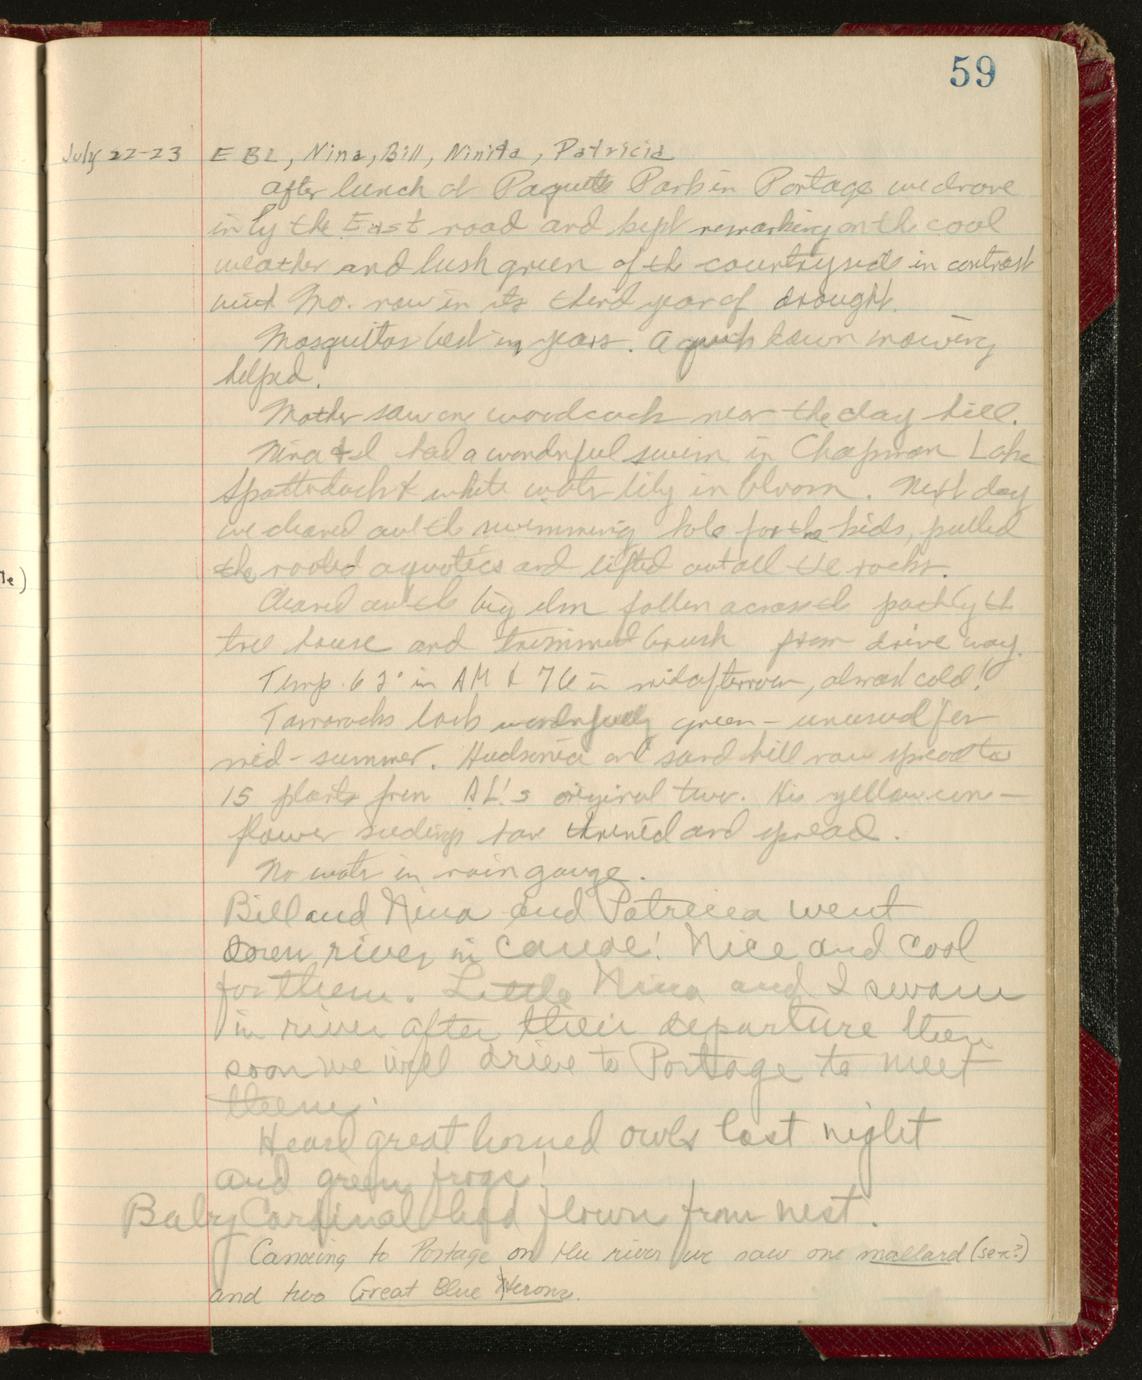 59
July 22-23 E BL, Nina, Bill, Ninita, Patricia
After lunch at Paquette Park in Portage we drove
in by the East road and kept remarking on the cool
weather and lush green of the countryside in contrast
with Mo. now in its third year of drought.
Mosquitos best in years. A quick lawn mowing
helped.
Mother saw one woodcock near the clay hill.
Nina & I had a wonderful swim in Chapman Lake
Spatterdock & white water lily in bloom. Next day
we cleared out the swimming hole for the kids, pulled
the rooted aquatics and lifted out all the rocks.
Cleared out the big elm fallen across the path by the
tree house and trimmed brush from drive way.
Temp. 62° in AM & 76 in midafternoon, almost cold!
Tamaracks look wonderfully green - unusual for
mid-summer. Hudsonia on sand hill now spread to
15 plants from AL's original two. His yellow cone-
flower seedings have thrived and spread.
No water in rain gauge.
Bill and Nina and Patricia went
down river in canoe! Nice and cool
for them. Little Nina and I swam
in river after their departure then
soon we will drive to Portage to meet
them.
Heard great horned owls last night
and green frogs!
Baby Cardinal had flown from nest.
Canoeing to Portage on the river we saw one mallard (sex?)
and two Great Blue Herons.